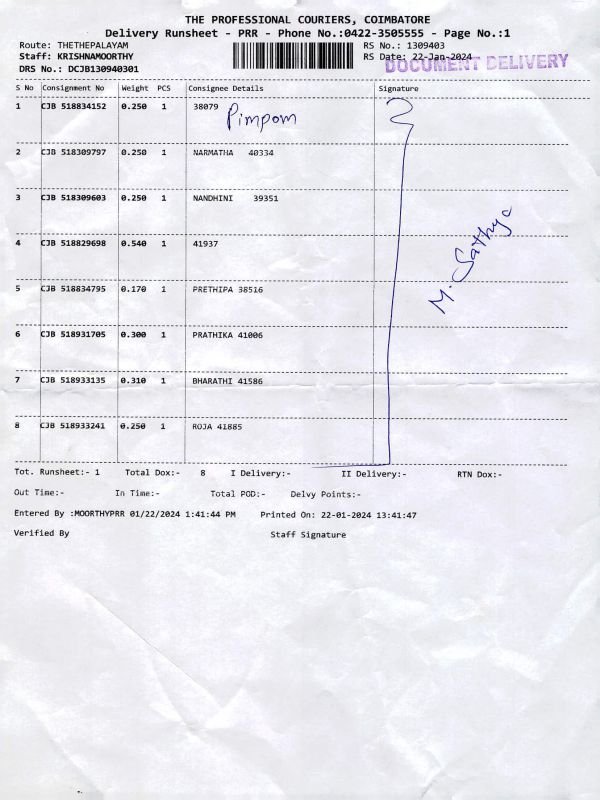 THE PROFESSIONAL COURIERS, COIMBATORE
Delivery Runsheet - PRR - Phone No.:0422-3505555 - Page No.:1
Route: THETHEPALAYAM RS No.: 1309403
Staff: KRISHNAMOORTHY RS Date: 22-Jan-2024
DRS No.: DCJB130940301 DOCUMENT DELIVERY
S No Consignment No Weight PCS Consignee Details Signature
1 CJB 518834152 0.250 1 38079
Pimpom
2 CJB 518309797 0.250 1 NARMATHA 40334
3 CJB 518309603 0.250 1 NANDHINI 39351
M. Sathya
4 CJB 518829698 0.540 1 41937
5 CJB 518834795 0.170 1 PRETHIPA 38516
6 CJB 518931705 0.300 1 PRATHIKA 41006
7 CJB 518933135 0.310 1 BHARATHI 41586
8 CJB 518933241 0.250 1 ROJA 41885
Tot. Runsheet:- 1 Total Dox:- 8 I Delivery:- II Delivery:- RTN Dox:-
Out Time:- In Time:- Total POD:- Delvy Points:-
Entered By :MOORTHYPRR 01/22/2024 1:41:44 PM Printed On: 22-01-2024 13:41:47
Verified By Staff Signature